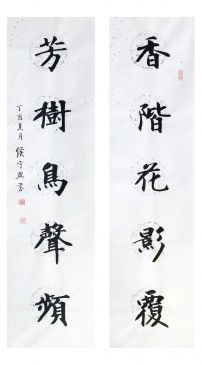 香階花影覆
芳樹鳥聲頻
丁酉夏月